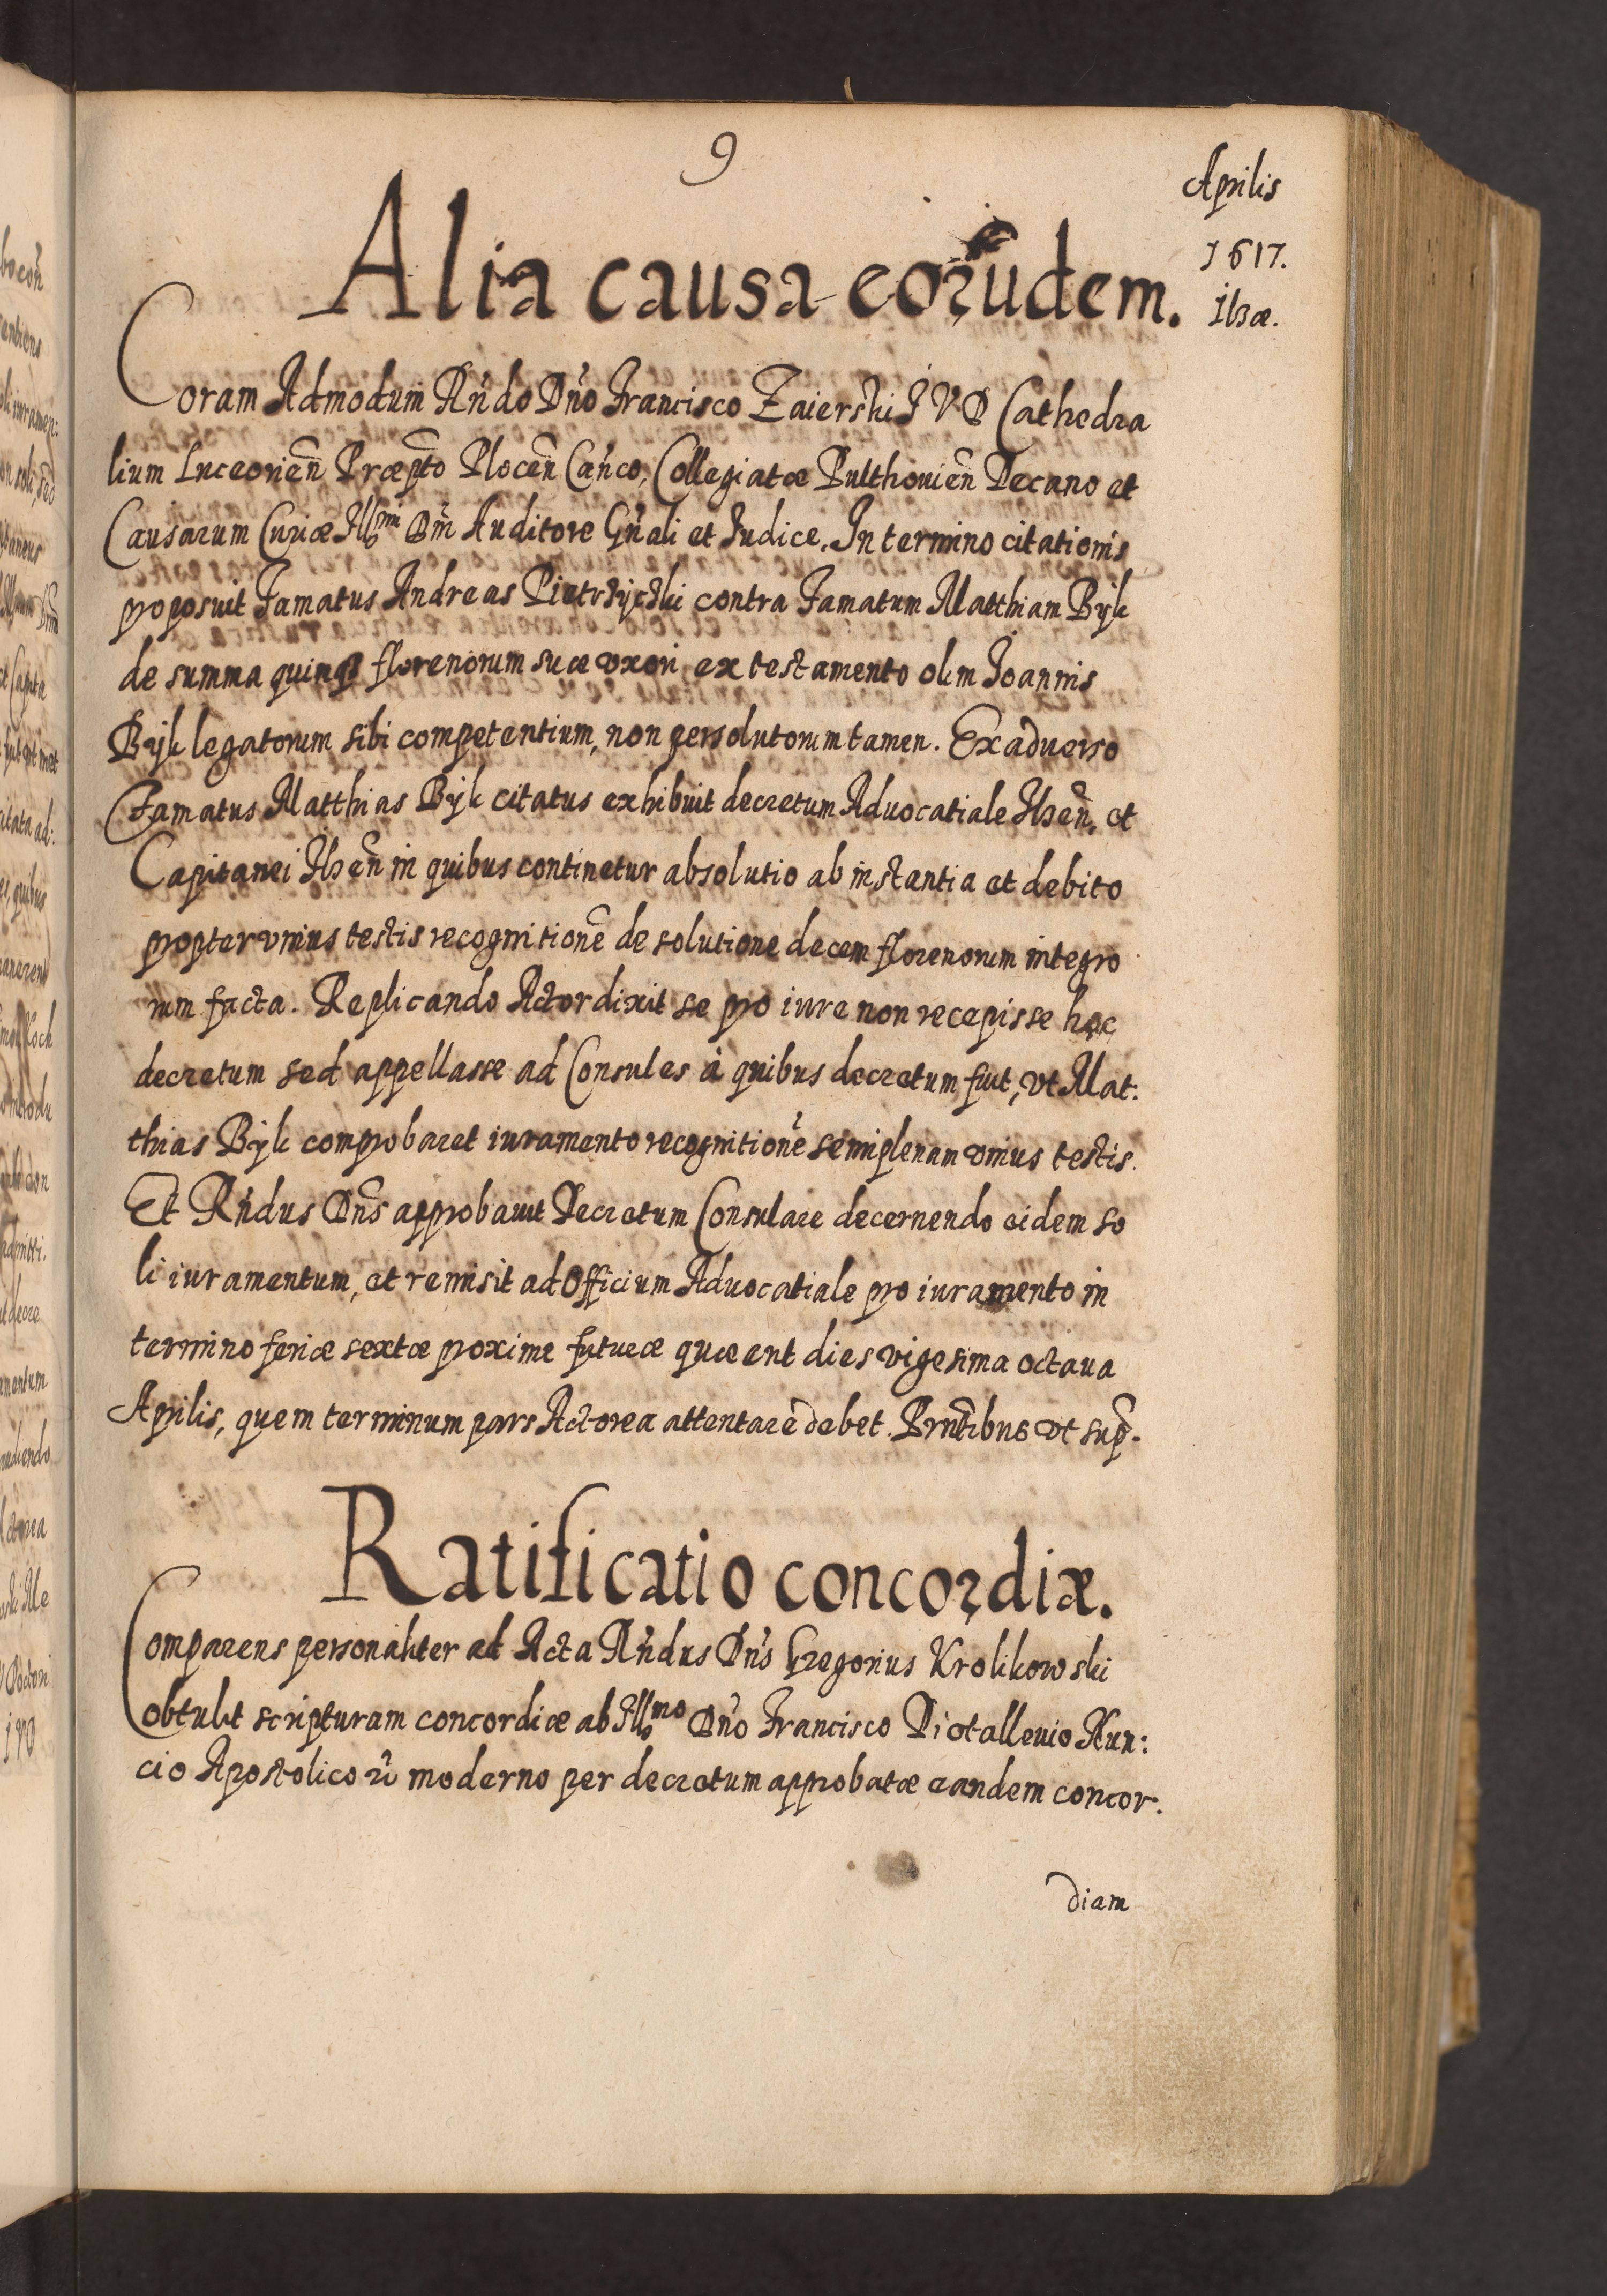 9
Aprilis
1617.
Ilzæ.
Alia causa eorudem.
Coram Admodum Rńdo Dńo Francisco Zaierski I V D Cathedra
lium Luceorien̄ Præpto Plocen̄ Cańco, Collegiatæ Pulthouien̄ Decano et
Causarum Curiæ Illmi Dni Auditore Gńali et Iudice. In termino citationis
proposuit Famatus Andreas Pietrzycki contra Famatum Matthiam Byk
de summa quinq florenorum suæ vxori ex testamento olim Ioannis
Byk legatorum sibi competentium, non persolutorum tamen. Ex aduerso
Famatus Matthias Byk citatus exhibuit decretum Aduocatiale Ilzen̄, et
Capitanei Ilzen̄ in quibus continetur absolutio ab instantia et debito
propter vnius testis recognitionē de solutione decem florenorum integro
rum facta. Replicando Actor dixit se pro iure non recepisse hoc
decretum sed appellasse ad Consules à quibus decretum fuit, vt Mat:
thias Byk comprobaret iuramento recognitionē semiplenam vnius testis.
Et Rńdus Dńs approbauit Decretum Consulare decernendo eidem so
li iuramentum, et remisit ad Officium Aduocatiale pro iuramento in
termino feriæ sextæ proxime futuræ quæ erit dies vigesima octaua
Aprilis, quem terminum pars Actorea attentare debet. Prntibus vt sup.
Ratificatio concordiæ.
Comparens personaliter ad Acta Rńdus Dńs Gregorius Krolikowski
obtulit scripturam concordiæ ab Illmo Dńo Francisco Diotalleuio Nun:
cio Apostolico moderno per decretum approbatæ eandem concor.
diam